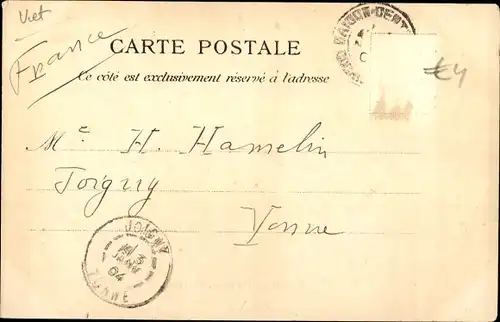 Viet
France
CARTE POSTALE
Ce côté est exclusivement réservé à l'adresse
€4
Mᶜ H. Hamelin
Joigny
Yonne
JOIGNY
JANV
04
YONNE